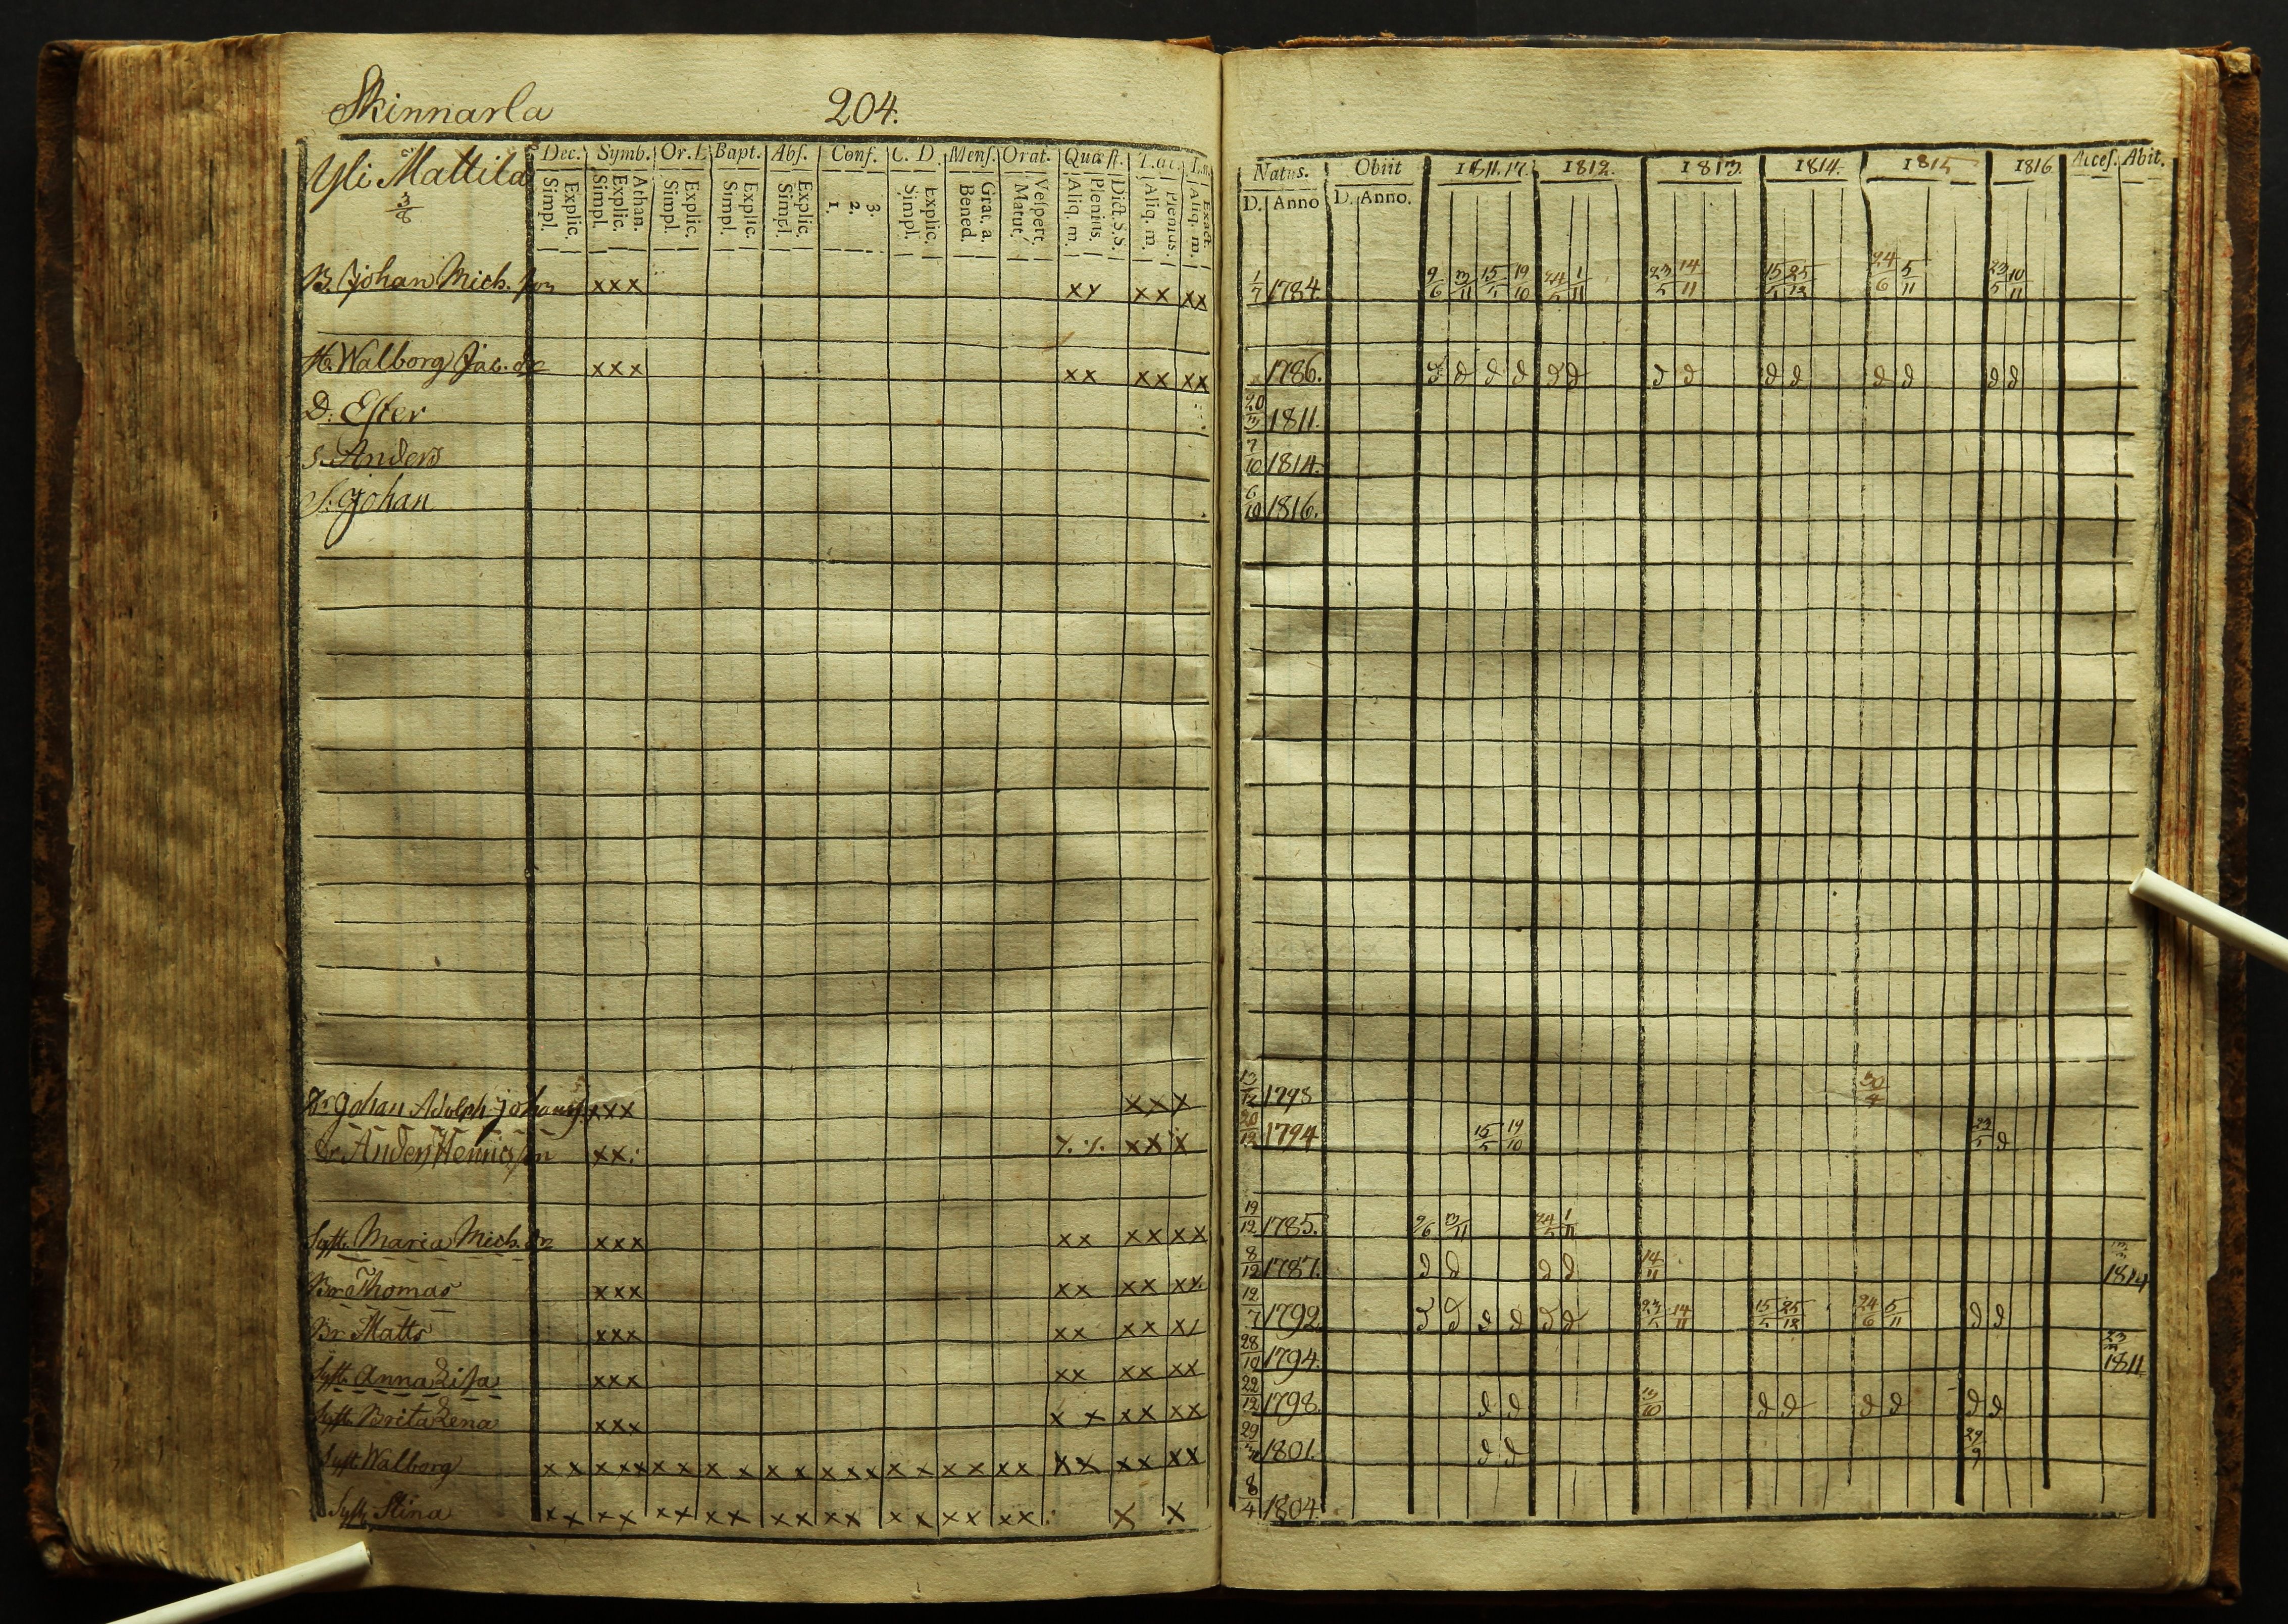 Skinnarla 204.
Yli Mattila Dec. Symb. Or. D Bapt. Abs. Conf. C. D. Mens. Orat. Quæst.
3/8
Explic. Simpl. Athan. Explic. Simpl. Explic. Simpl. Explic. Simpl. Explic. Simpl. 3. 2. 1. Explic. Simpl. Grat. a. Bened. Vespert. Matut. Dict. S.S. Plenius. Aliq. m. Plenius. Aliq. m. Exact. Aliq. m.
B. Johan Mich. son xxx xx xx xx
H. Walborg Jac. dr xxx xx xx xx
D. Ester
S. Anders
S. Johan
Johan Adolph Johans xxx xxx
Dr. Anders Henricsson xx
Syst. Maria Mich. dr xxx xx xx xx
Br Thomas xxx xx xx xx
Br Matts xxx xx xx
Syst. Anna Lisa xxx xx xx xx
Syst. Brita Lena xxx x x xx xx
Syst. Walborg xx xxx xx xx xx xxx xx xx xx xx xx xx
Syst. Stina xx xx xx xx xx xx xx xx xx x x
Natus. Obiit 1811.17. 1812. 1813. 1814. 1815 1816 Acces. Abit.
D. Anno D. Anno.
1/7 1784 9/6 3/11 15/5 19/10 24/5 1/11 23/5 14/11 15/5 25/12 24/6 5/11 23/5 10/11
1786. d d d d d d d d d d d d d d
20/3 1811.
7/10 1814.
6/10 1816.
13/12 1798 30/4
20/12 1794 15/5 19/10 d
19/12 1785. 9/6 3/11 24/5 1/11
8/12 1787. d d d d 14/11 1814
12/7 1792. d d d d d d 23/5 14/11 15/5 25/12 24/6 5/11 d d
28/10 1794. 1811.
22/12 1798. d d 3/10 d d d d d d
29/3 1801. d d 29/9
8/4 1804.